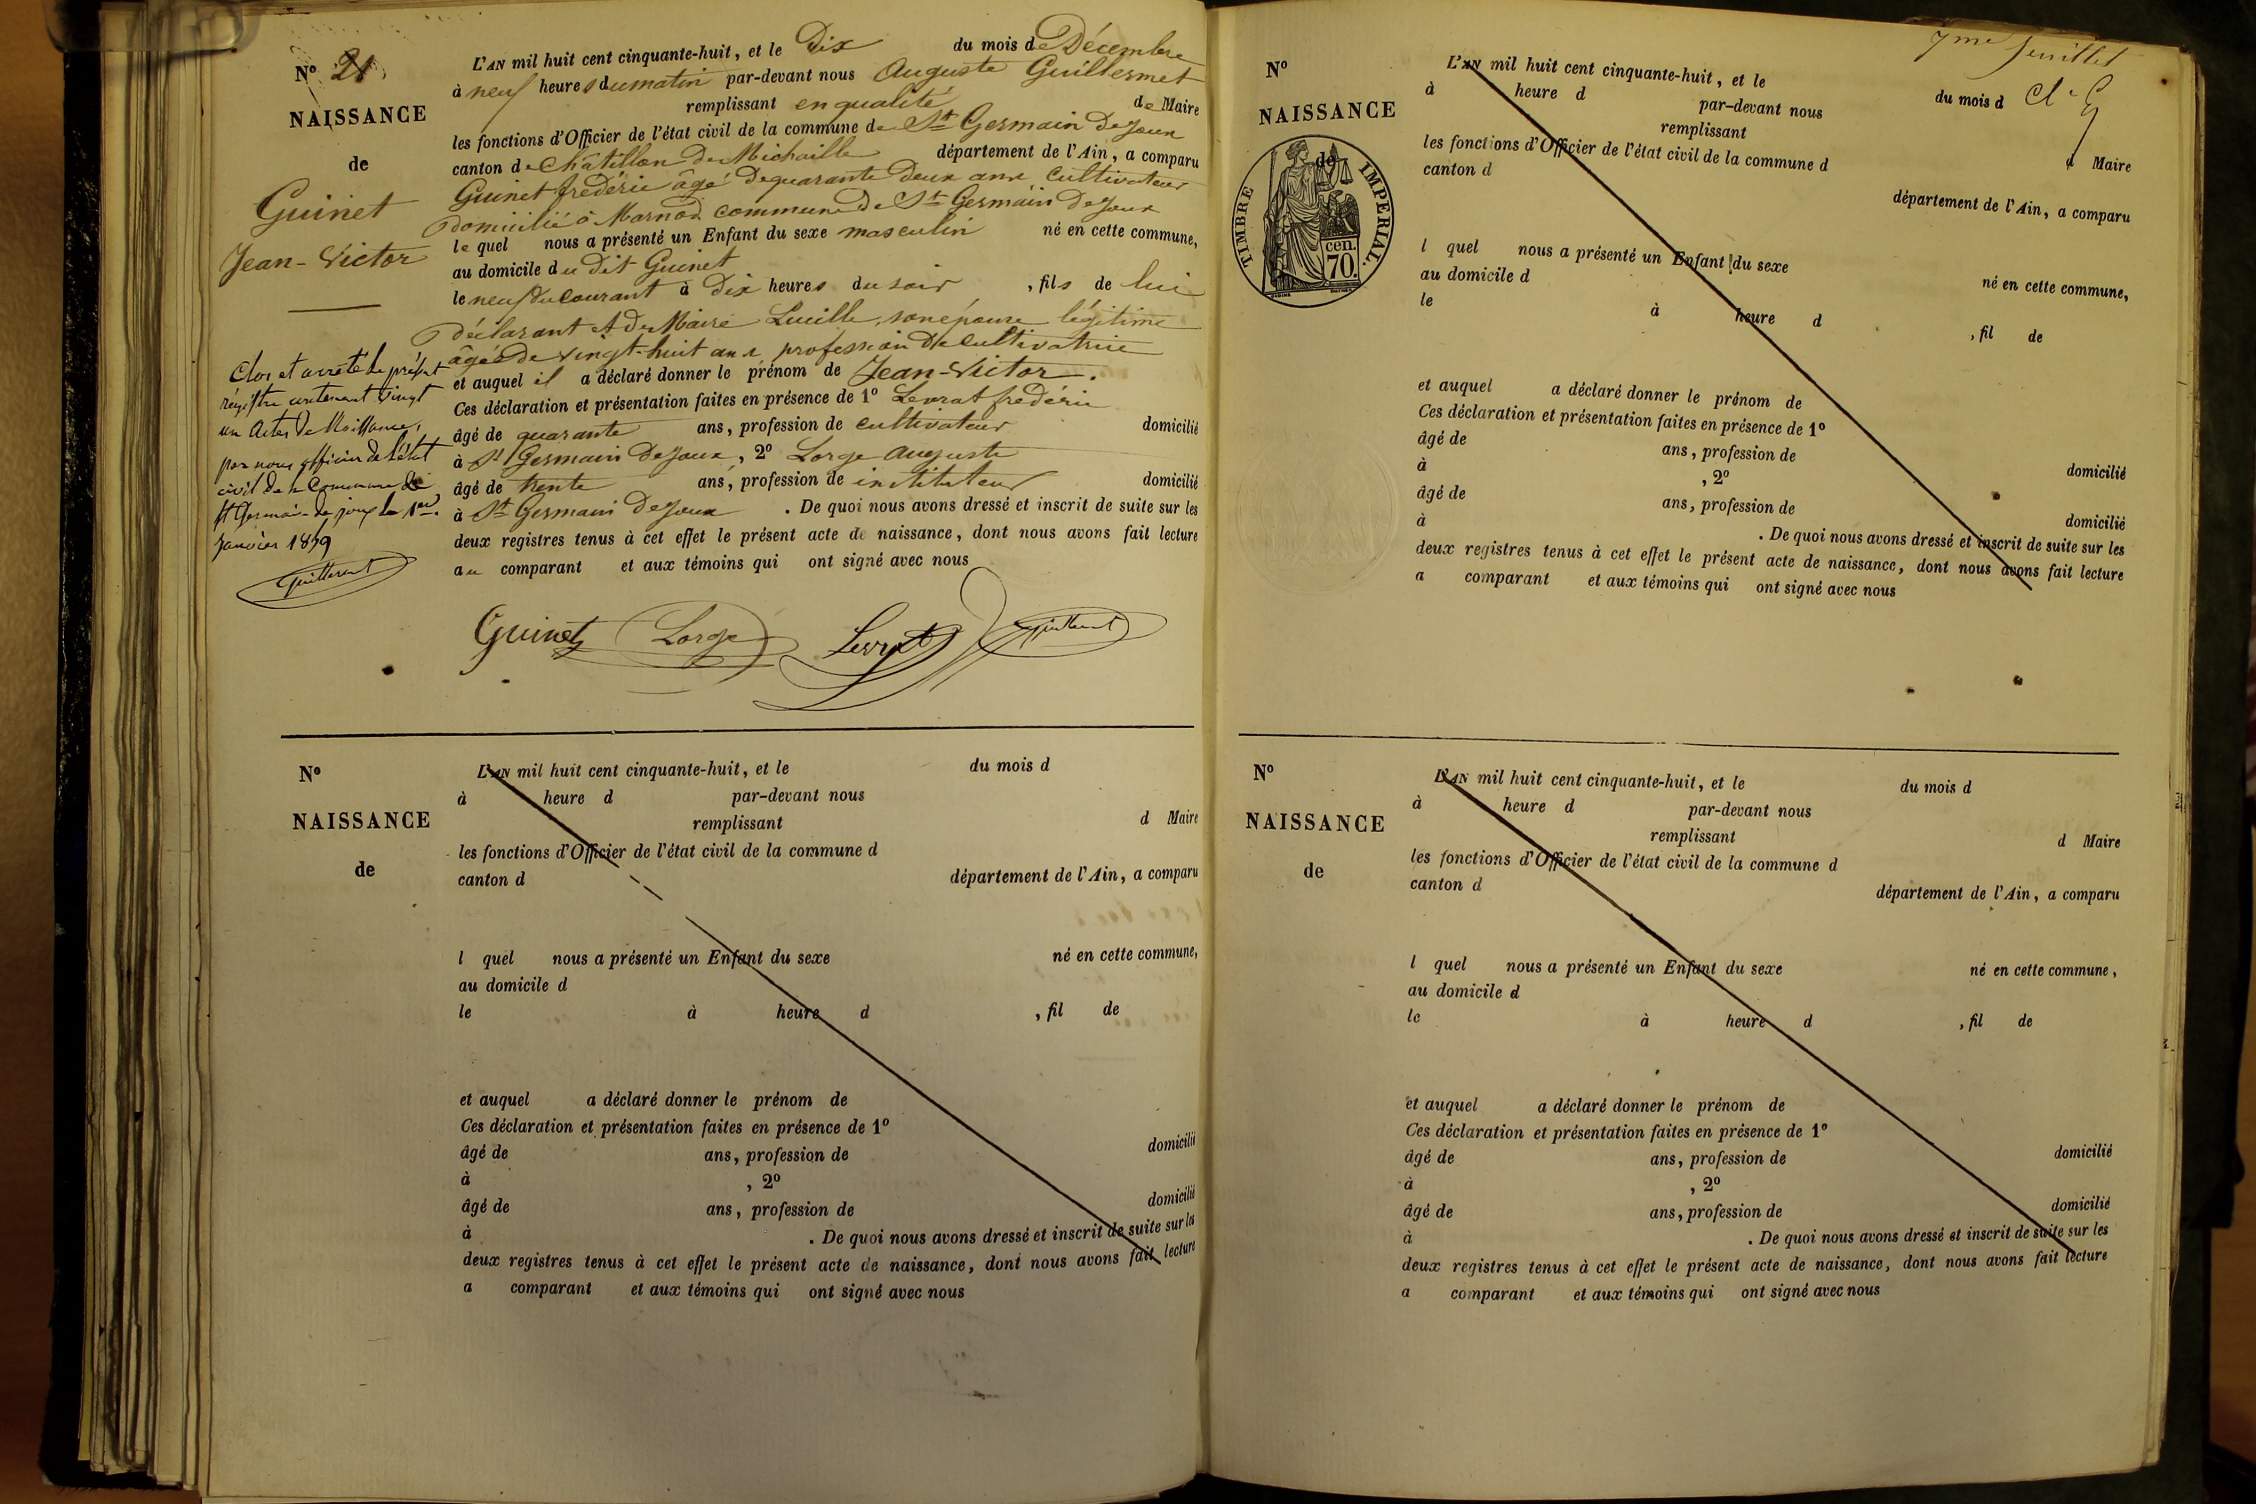 N° 21
NAISSANCE
de
Guinet
Jean-Victor
L'AN mil huit cent cinquante-huit, et le Dix du mois de Décembre
à neuf heures du matin par-devant nous Auguste Guillermet
remplissant en qualité de Maire
les fonctions d'Officier de l'état civil de la commune de St Germain De Joux
canton de Châtillon De Michaille département de l'Ain, a comparu
Guinet frédéric âgé De quarante Deux ans cultivateur
Domicilié à Marnod commune De St Germain De Joux
le quel nous a présenté un Enfant du sexe masculin né en cette commune,
au domicile du Dit Guinet
le neuf Du Courant à Dix heures du soir, fils de lui
Déclarant et De Maire Lucille, son épouse légitime
âgée De vingt-huit ans, profession De cultivatrice
et auquel il a déclaré donner le prénom de Jean-Victor.
Ces déclaration et présentation faites en présence de 1° Levrat frédéric
âgé de quarante ans, profession de cultivateur domicilié
à St Germain De Joux, 2° Lorge Auguste
âgé de trente ans, profession de instituteur domicilié
à St Germain De Joux. De quoi nous avons dressé et inscrit de suite sur les
deux registres tenus à cet effet le présent acte de naissance, dont nous avons fait lecture
au comparant et aux témoins qui ont signé avec nous
Guinet Lorge Levrat Guillermet
Clos et arrêté le présent
régistre contenant vingt
un Actes de Naissance,
par nous officier de l'état
civil de la Commune de
St Germain-de-joux le 1er.
Janvier 1859
Guillermet
N°
NAISSANCE
de
L'AN mil huit cent cinquante-huit, et le du mois d
à heure d par-devant nous
remplissant d Maire
les fonctions d'Officier de l'état civil de la commune d
canton d département de l'Ain, a comparu
l quel nous a présenté un Enfant du sexe né en cette commune,
au domicile d
le à heure d , fil de
et auquel a déclaré donner le prénom de
Ces déclaration et présentation faites en présence de 1°
âgé de ans, profession de domicilié
à , 2°
âgé de ans, profession de domicilié
à . De quoi nous avons dressé et inscrit de suite sur les
deux registres tenus à cet effet le présent acte de naissance, dont nous avons fait lecture
a comparant et aux témoins qui ont signé avec nous
7me feuillet
N°
NAISSANCE
de
TIMBRE IMPERIAL.
cen.
70.
L'AN mil huit cent cinquante-huit, et le du mois d
à heure d par-devant nous
remplissant d Maire
les fonctions d'Officier de l'état civil de la commune d
canton d département de l'Ain, a comparu
l quel nous a présenté un Enfant du sexe né en cette commune,
au domicile d
le à heure d , fil de
et auquel a déclaré donner le prénom de
Ces déclaration et présentation faites en présence de 1°
âgé de ans, profession de domicilié
à , 2°
âgé de ans, profession de domicilié
à . De quoi nous avons dressé et inscrit de suite sur les
deux registres tenus à cet effet le présent acte de naissance, dont nous avons fait lecture
a comparant et aux témoins qui ont signé avec nous
N°
NAISSANCE
de
L'AN mil huit cent cinquante-huit, et le du mois d
à heure d par-devant nous
remplissant d Maire
les fonctions d'Officier de l'état civil de la commune d
canton d département de l'Ain, a comparu
l quel nous a présenté un Enfant du sexe né en cette commune,
au domicile d
le à heure d , fil de
et auquel a déclaré donner le prénom de
Ces déclaration et présentation faites en présence de 1°
âgé de ans, profession de domicilié
à , 2°
âgé de ans, profession de domicilié
à . De quoi nous avons dressé et inscrit de suite sur les
deux registres tenus à cet effet le présent acte de naissance, dont nous avons fait lecture
a comparant et aux témoins qui ont signé avec nous